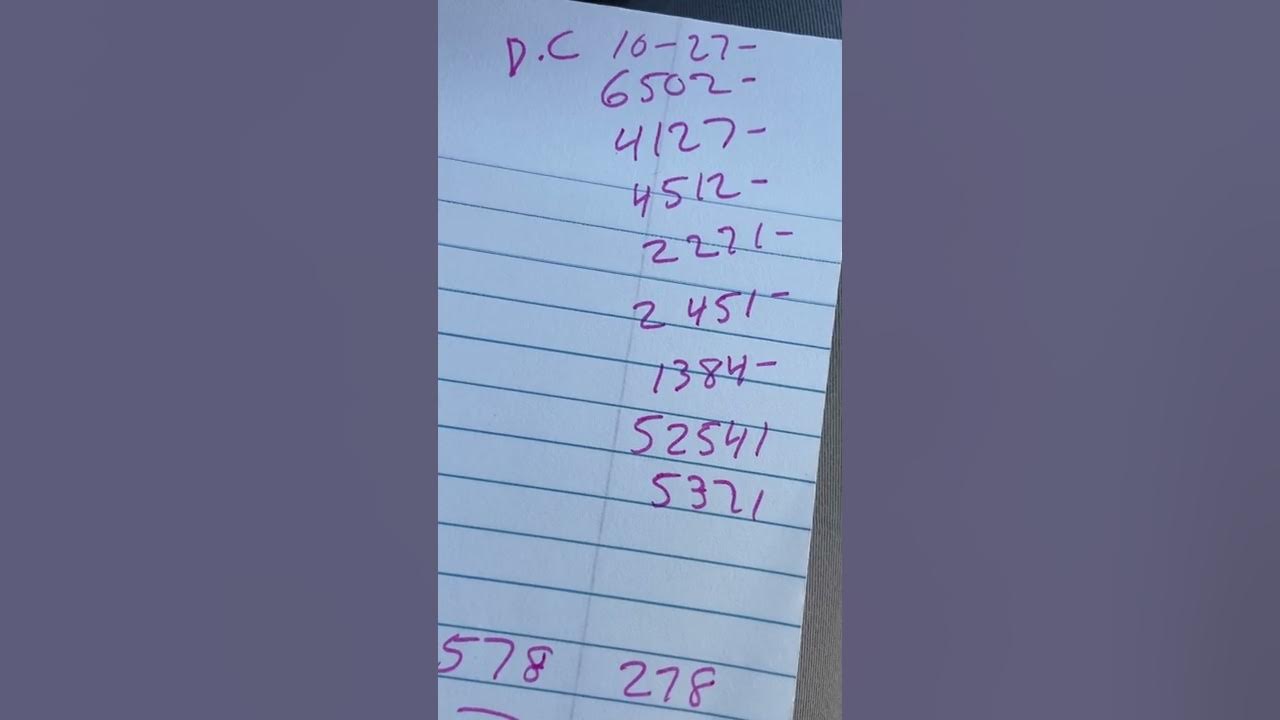 D.C 10-27-
6502-
4127-
4512-
2271-
2451-
1384-
52541
5321
578 278